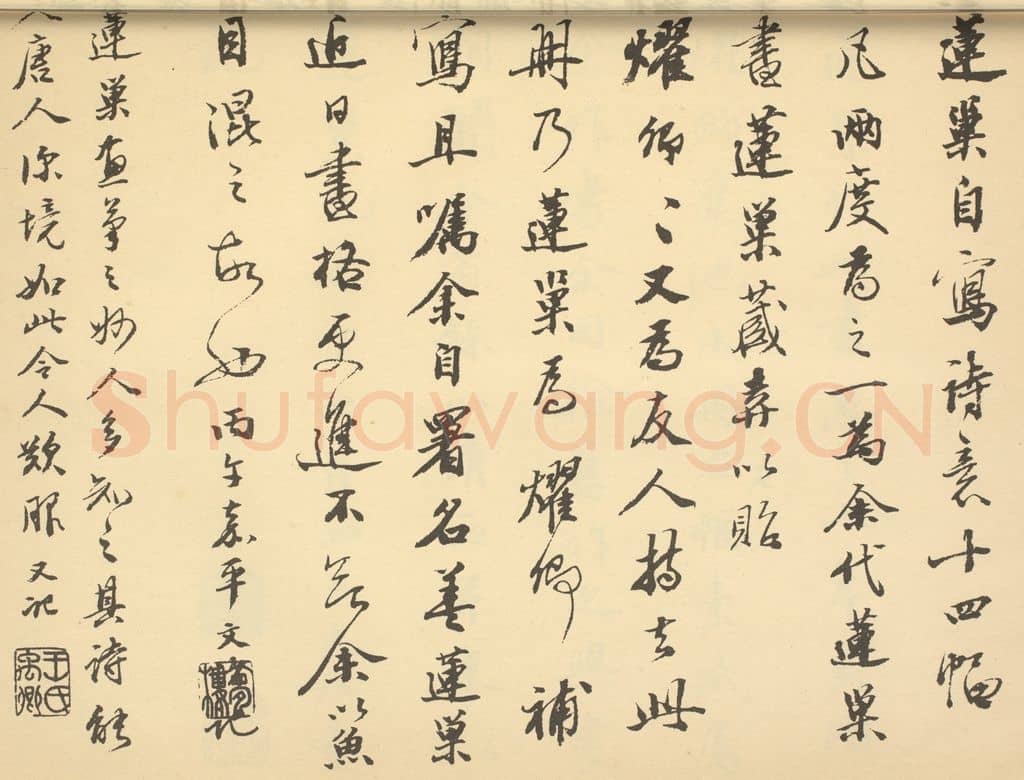 蓮巢自寫詩意十四幅
凡兩度為之一為余代蓮巢
書蓮巢藏弆以貽
燿卿〻又為友人持去此
冊乃蓮巢為燿卿補
寫且囑余自署名蓋蓮巢
近日畫格更進不欲余以魚
目混之故也丙午嘉平文治記
蓮巢畫筆之妙人多知之其詩能
入唐人深境如此令人歎服又記
王氏禹卿
Shufawang.CN